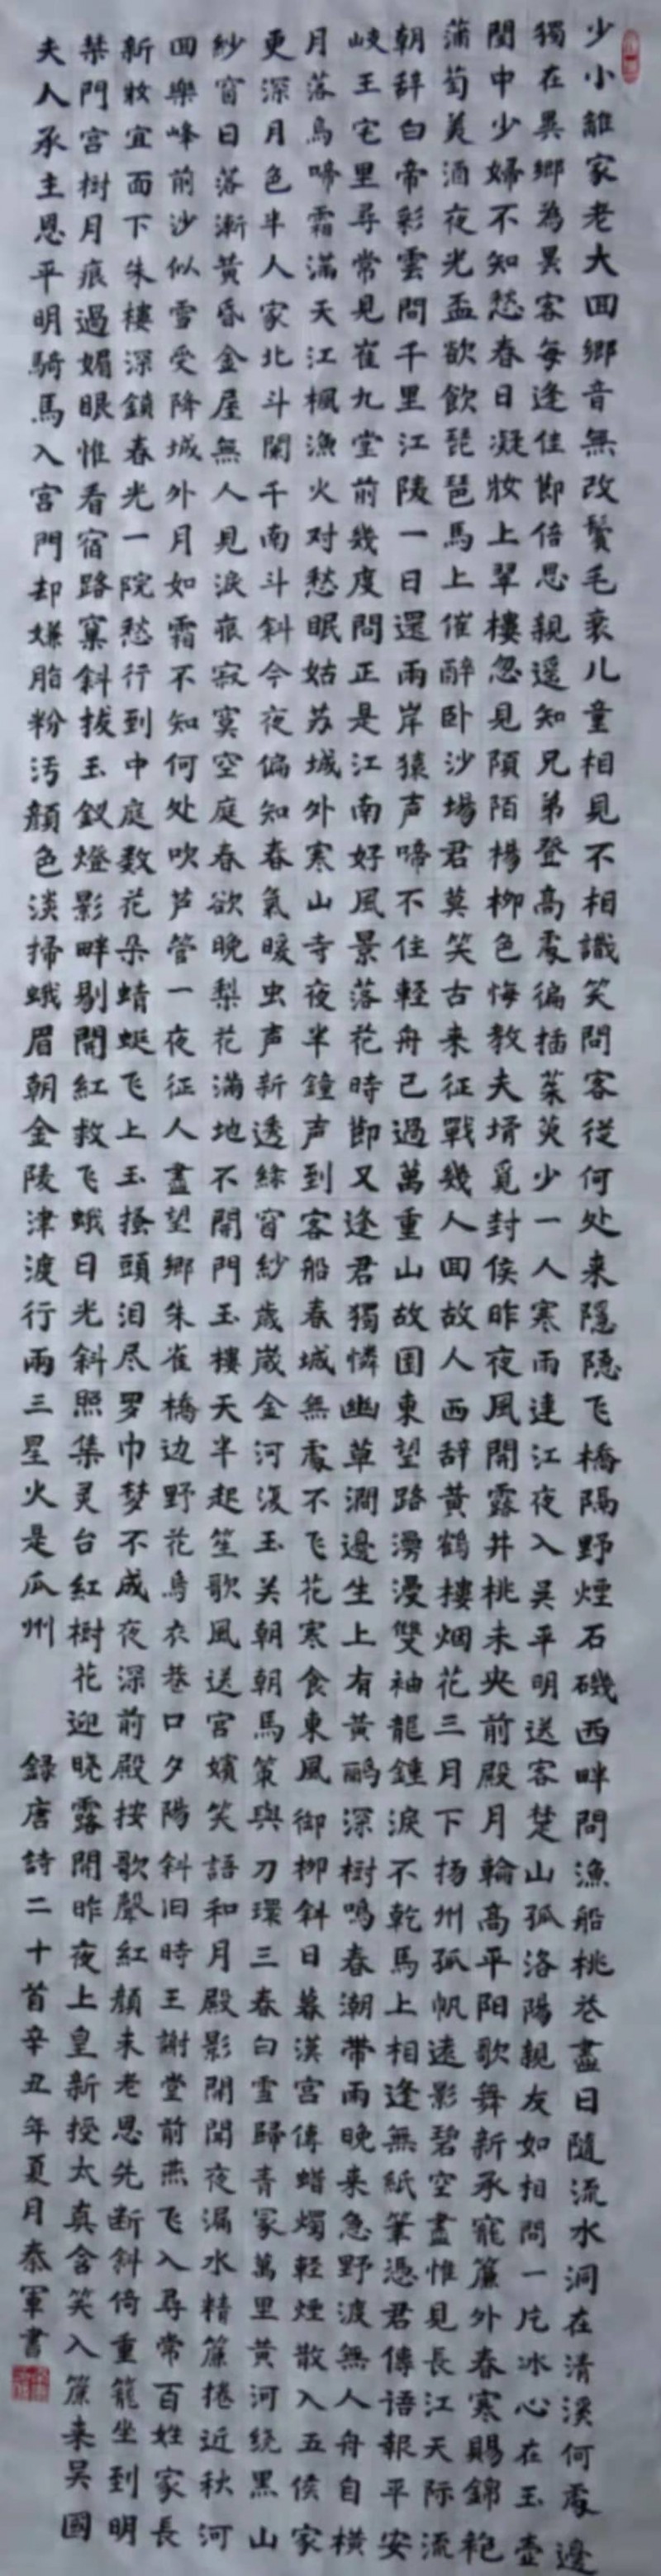 少小離家老大回鄉音無改鬢毛衰儿童相見不相識笑問客從何处来隱隱飞橋隔野煙石磯西畔問漁船桃花盡日隨流水洞在清溪何處邊
獨在異鄉為異客每逢佳節倍思親遥知兄弟登高處徧插茱萸少一人寒雨連江夜入吴平明送客楚山孤洛陽親友如相問一片冰心在玉壺
閨中少婦不知愁春日凝妝上翠樓忽見頭陌楊柳色悔教夫壻覓封侯昨夜風開露井桃未央前殿月輪高平阳歌舞新承寵簾外春寒賜錦袍
蒲萄美酒夜光盃欲飲琵琶馬上催醉卧沙場君莫笑古来征戰幾人回故人西辞黃鶴樓烟花三月下揚州孤帆遠影碧空盡惟見長江天际流
朝辞白帝彩雲間千里江陵一日還兩岸猿声啼不住輕舟已過萬重山故園東望路漫漫雙袖龍鍾淚不乾馬上相逢無紙筆憑君傳语報平安
岐王宅里尋常見崔九堂前幾度聞正是江南好風景落花時節又逢君獨憐幽草澗邊生上有黃鸝深樹鳴春潮帶雨晚来急野渡無人舟自橫
月落烏啼霜滿天江楓漁火对愁眠姑苏城外寒山寺夜半鐘声到客船春城無處不飞花寒食東風御柳斜日暮漢宮傳蜡燭輕煙散入五侯家
更深月色半人家北斗闌干南斗斜今夜偏知春氣暖虫声新透綠窗紗歲歲金河復玉关朝朝馬策與刀環三春白雪歸青冢萬里黃河绕黑山
紗窗日落漸黃昏金屋無人見淚痕寂寞空庭春欲晚梨花滿地不開門玉樓天半起笙歌風送宮嬪笑語和月殿影開聞夜漏水精簾捲近秋河
回樂峰前沙似雪受降城外月如霜不知何处吹芦管一夜征人盡望鄉朱雀橋边野花烏衣巷口夕陽斜旧時王謝堂前燕飞入尋常百姓家長
新妝宜面下朱樓深鎖春光一院愁行到中庭数花朵蜻蜓飞上玉搔頭泪尽罗巾梦不成夜深前殿按歌聲紅顏未老恩先断斜倚重籠坐到明
禁門宮樹月痕過媚眼惟看宿路窠斜拔玉釵燈影畔剔開紅救飞蛾日光斜照集灵台紅樹花迎晓露開昨夜上皇新授太真含笑入簾来吴國
夫人承主恩平明騎馬入宮門却嫌脂粉污顏色淡掃蛾眉朝金陵津渡行兩三星火是瓜州
錄唐詩二十首辛丑年夏月泰軍書